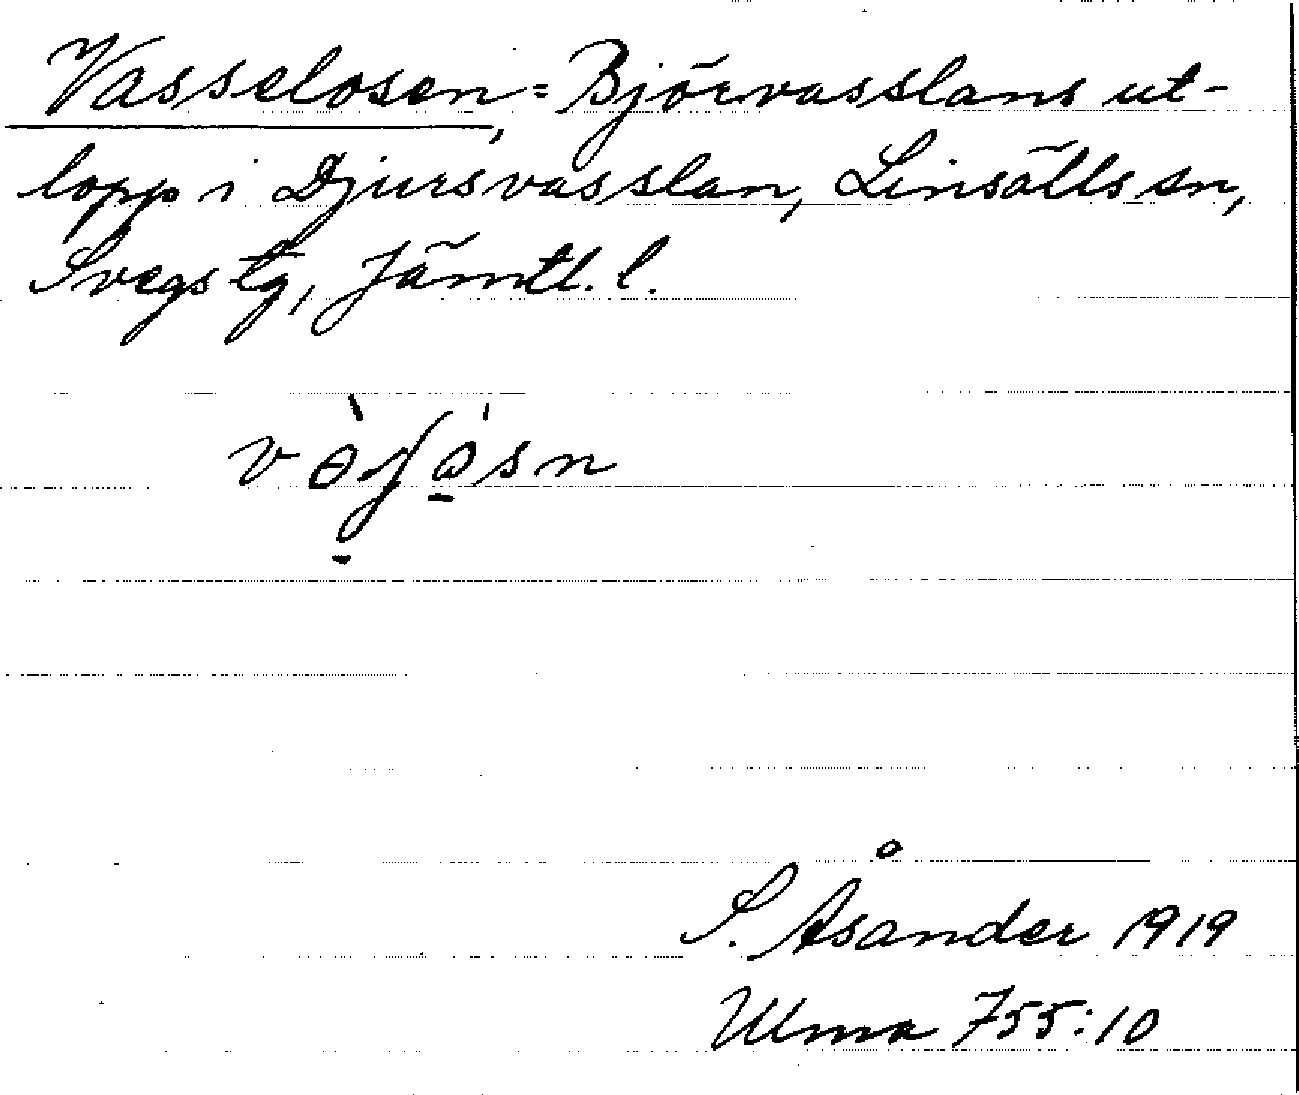 Vasselosen, = Björvasslans ut-
lopp i Djursvasslan, Linsälls sn,
Svegs tg, Jämtl. l.
S. Åsander 1919
Ulma 755:10